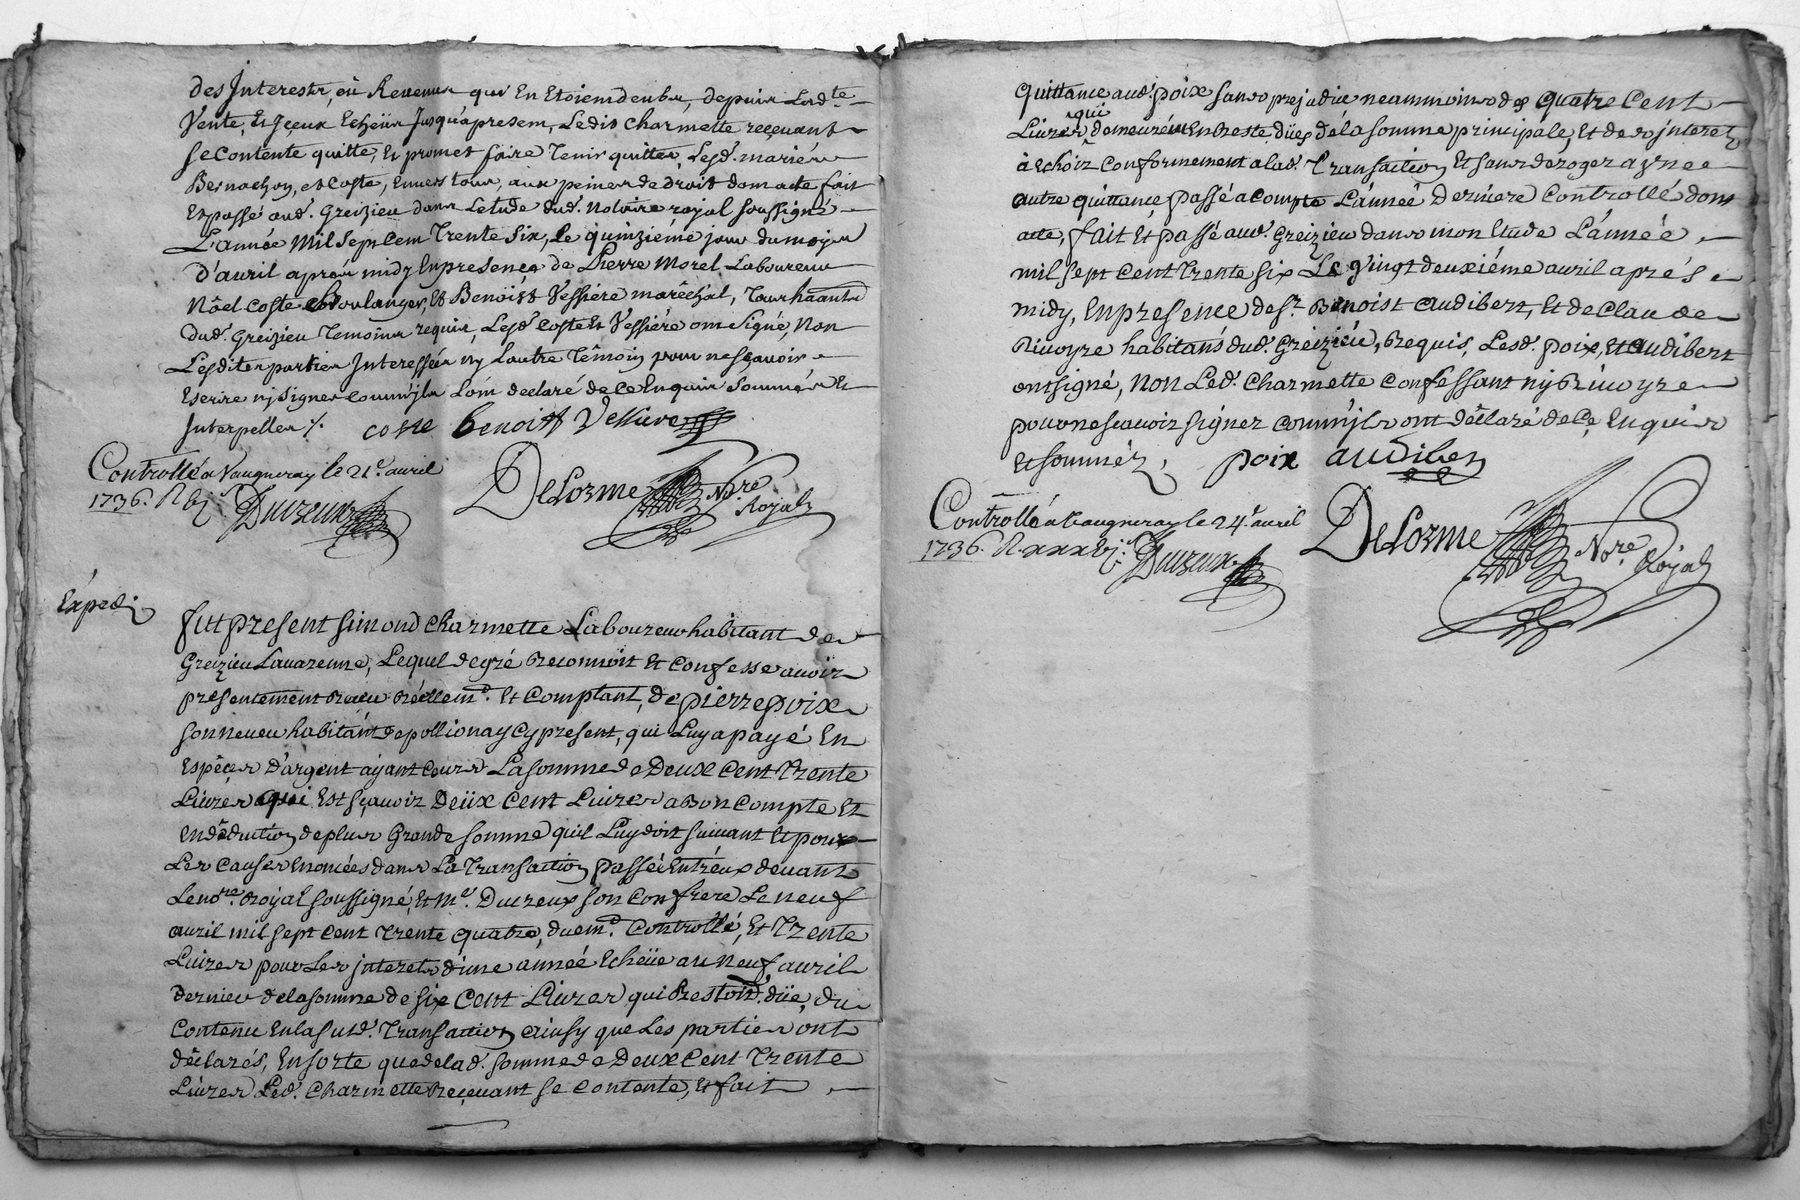 des Interests, où Revenus qui En Etoient deubs, depuis Lad.te
Vente, Et Iceux Echeüs Jusqu'apresent, Ledit Charmette reçeuant
se Contente quitte, Et promet faire Tenir quittes, Lesd. mariés
Bernachon, et Coste, Enuers tous, aux peines de Droit dont acte fait
Et passé aud. Greizieu dans Letude dud. Notaire royal soussigné
L'année Mil Sept Cent Trente Six, Le quinzieme jour du mois
D'auril aprés midy En presence de Pierre Morel Laboureur
Nöel Coste Boulanger, Et Benoist Vessiére maréchal, Tous haants
dud. Greizieu Temoins requis, Lesd. Coste Et Vessiére ont Signé, Non
Lesdites parties Interessées ny Lautre Témoin pour ne sçauoir
Escrire ny Signer comm'jls L'ont declaré de Ce Enquis Sommés Et
Interpelles ./.
coste benoist Vessiere
Controllé a Vaugneray le 21e. auril
1736. R
Ducreux
DeLorme No.re Royal
Expedi.
Fut present Simond Charmette Laboureur habitant de
Greizieu Lauarenne, Lequel de gré Reconnoit Et Confesse auoir
presentement Receu Réellem.t Et Comptant, de pierre poix
son neueu habitant de pollionay Cy present, qui Luy a payé En
Espéces D'argent ayant Cours La somme de Deux Cent Trente
Liures qui Est sçauoir Deüx Cent Liures a Bon Compte Et
En déduction de plus Grande somme qu'il Luy doit suiuant Et pour
Les Causes Enoncées dans La Transaction passéé Entr'eux deuant
Le no.re Royal soussigné, Et M.e Ducreux son Confrere Le neuf
auril mil sept cent Trente quatre, duem.t Controllé, Et Trente
Liures pour Les jnterets d'une année Echeüe au Neuf auril
dernier de la somme de Six Cent Liures qui Restoit düe, du
Contenu En la sud. Transaction ainsy que Les parties ont
déclarés, En sorte que de lad. somme de Deux Cent Trente
Liures Led. Charmette Reçeuant se Contente, Et fait
quittance aud. poix sans prejudice neammoins des quatre Cent
qui
Liures demeurés En Reste düe de la somme principale, Et des jnterets
à Echoir Conformement a lad. Transaction Et sans deroger a une
autre quittance passé a Compte L'année Derniere Controllé dont
acte, fait Et passé aud. Greizieu dans mon Etude L'année
mil sept Cent Trente six Le vingt deuxiéme auril aprés
midy, En presence de s.r Benoist audibert, Et de Claude
Riuoyre habitans dud. Greizieu, Requis, Lesd. poix, Et audibert
ont signé, Non Led. Charmette Confessant ny Riuoyre
pour ne sçauoir signer comm'jls ont déclaré de Ce Enquis
Et sommés,
poix audibert
Controllé a Vaugneray le 24e. auril
1736. R
Ducreux.
DeLorme No.re Royal